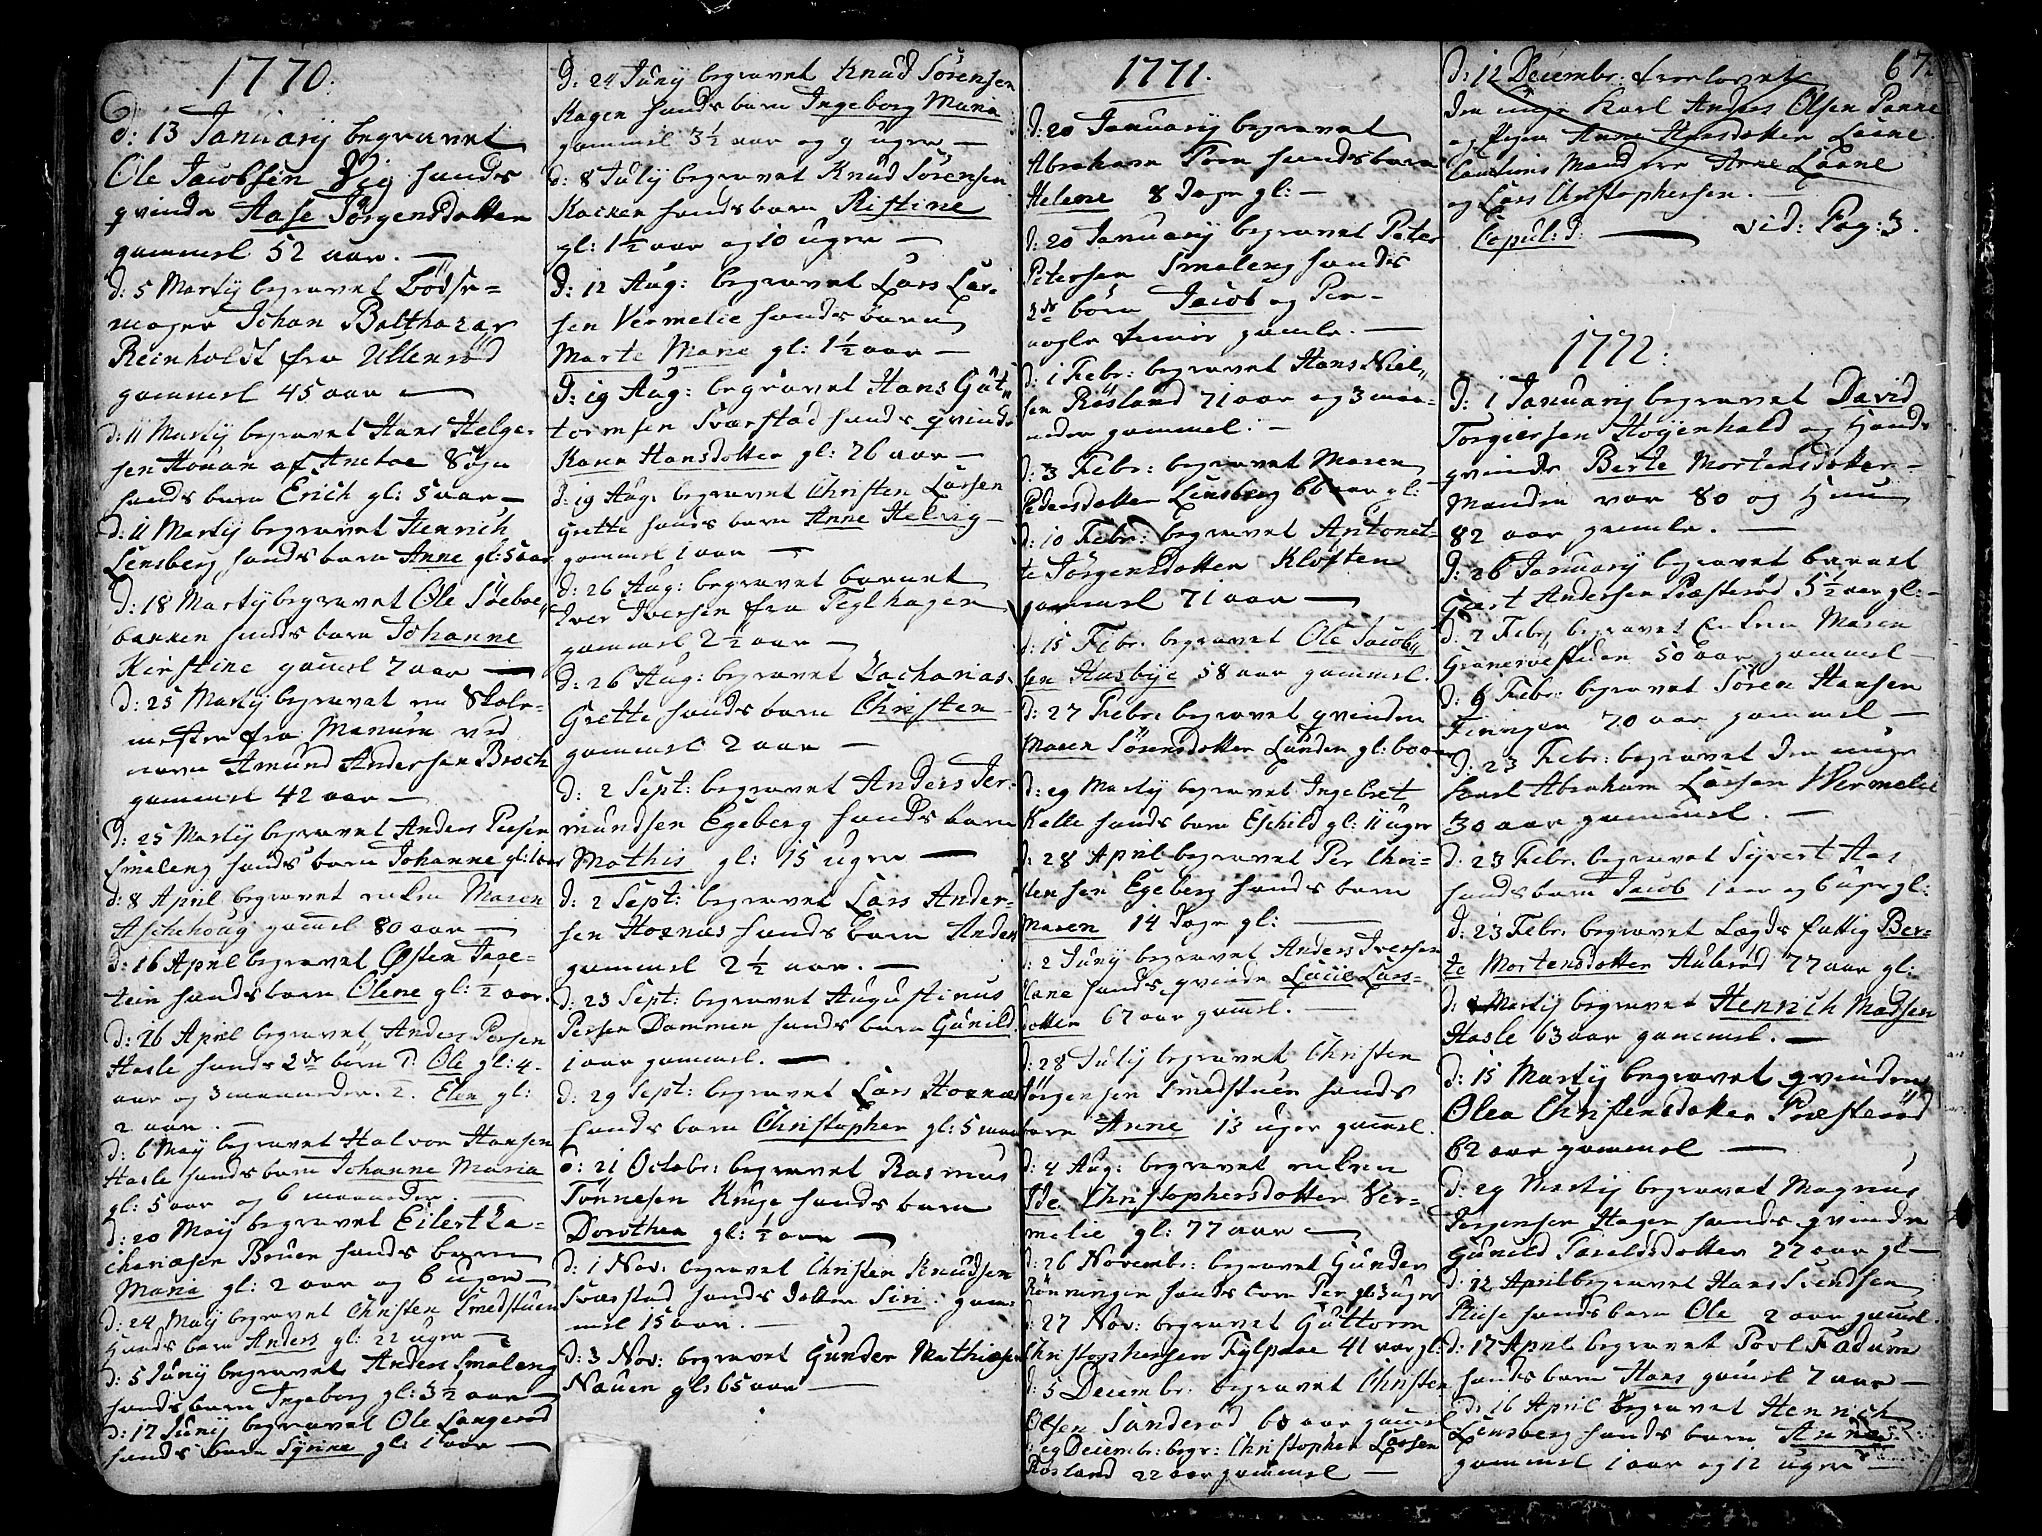 1770.
d: 13 Januarij begravet
Ole Jacobsen Viig hands
qvinde Aase Jörgensdatter
gammel 52 aar. —
d: 5 Martij begravet Bödke-
mager Johan Balthazar
Reinholdt fra Ullerröd
gammel 45 aar —
d: 11 Martij begravet Hans Helge-
sen af
hands barn Erich gl: 5 aar —
d: 11 Martij begravet Henrich
Lensberg hands barn Anne gl: 5 aar
d: 18 Martij begravet Ole Söeboe
backen hands barn Johanne
Kirstine gam̄el 7 aar —
d: 25 Martij begravet en Skole-
mester fra Manum ved
navn Amund Andersen Broch
gammel 42 aar —
d: 25 Martij begravet Anders Persen
Smaleng hands barn Johanne gl: 1 aar
d: 8 April begravet enken Maren
Aschehoug gam̄el 80 aar —
d: 16 April begravet Østen Tase-
tein hands barn Olene gl: ½ aar.
d: 26 April begravet Anders Persen
Hasle hands 2de börn 1. Ole gl: 4
aar og 3 maaneder. 2. Elen gl:
2 aar. —
d: 6 Maij begravet Halvor Hansen
Hasle hands barn Johanne Maria
gl: 5 aar og 6 maaneder. —
d: 20 Maij begravet Eilert Za-
chariasen Bruen hands barn
Maria gl: 2 aar og 6 uger —
d: 24 Maij begravet Christen Smedstuen
hands barn Anders gl: 22 uger —
d: 5 Junij begravet Anders Smaleng
hands barn Ingeborg gl: 3½ aar —
d: 17 Junij begravet Ole Langeröd
hands barn Synne gl: 1 aar —
d: 24 Junij begravet Knud Sörensen
Hagen hands barn Ingeborg Maria
gammel 3½ aar og 9 uger —
d: 8 Julij begravet Knud Sörensen
Backen hands barn Kistine
gl: 1½ aar og 10 uger —
d: 12 Aug: begravet Lars Lar-
sen Vermelie hands barn
Marte Marie gl: 1½ aar —
d: 19 Aug: begravet Hans Gut-
tormsen Sværstad hands qvinde
Karen Hansdatter gl: 26 aar —
d: 19 Aug: begravet Christen Larsen
Grette hands barn Anne Helvig
gammel 1 aar —
d: 26 Aug: begravet barnet
Iver Iversen fra Teglhagen
gammel 2½ aar —
d: 26 Aug: begravet Zacharias
Grette hands barn Christen
gammel 2 aar —
d: 2 Sept: begravet Anders Ter-
mundsen Egeberg hands barn
Mathis gl: 15 uger —
d: 2 Sept: begravet Lars Ander-
sen Hornæs hands barn Anders
gammel 2½ aar. —
d: 23 Sept: begravet Augustinus
Persen Dammen hands barn Gunild
1 aar gammel. —
d: 29 Sept: begravet Lars Hornæs
hands barn Christopher gl: 5
d: 21 Octobr: begravet Rasmus
Tönnesen Kruse hands barn
Dorothea gl: ½ aar —
d: 1 Nov: begravet Christen Knudsen
Sværstad hands datter Siri gam-
mel 15 aar. —
d: 3 Nov: begravet Gunder Mathiasen
Nauen gl: 65 aar —
1771.
d: 20 Januarij begravet
Abraham hands barn
Helene 8 dage gl: —
d: 20 Januarij begravet Peter
Petersen Smaleng hands
2de börn Jacob og Per
nogle timer gamle. —
d: 1 Febr: begravet Hans Niel-
sen Räsland 71 aar og 3 maa-
neder gammel. —
d: 3 Febr: begravet Maren
Pedersdatter Lensberg 66 aar gl: —
d: 10 Febr: begravet Antonet-
te Jörgensdatter Klosten
gammel 71 aar —
d: 15 Febr: begravet Ole Jacob-
sen Husbye 58 aar gammel.
d: 27 Febr: begravet qvinden
Maren Sörensdatter Lunden gl: 60 aar
d: 29 Martij begravet Ingebret
Kalle hands barn Eschild gl: 11 uger
d: 28 April begravet Per Chri-
stensen Egeberg hands barn
Maren 14 dage gl: —
d: 2 Junij begravet Anders Iversen
hands qvinde Lucie Lars-
datter 67 aar gam̄el. —
d: 28 Julij begravet Christen
Jörgensen Smedstuen hands
barn Anne 13 uger gam̄el.
d: 4 Aug: begravet enken
Ide Christophersdatter Ver-
melie gl: 77 aar —
d: 26 Novembr: begravet Gunder
Rönningen hands barn Per gl: 3 uger
d: 27 Nov: begravet Guttorm
Christophersen Fylpaae 41 aar gl:
d: 5 Decembr: begravet Christen
Olsen Sanderöd 60 aar gam̄el
d: 29 Decembr: begr: Christopher Larsen
Räsland 22 aar gammel —
67.
d: 12 Decembr: trolovet
den unge Karl Anders Olsen
og Pigen Anne Hansdatter Laane.
Cautions Mænd ere Arne Laane
og Lars Christophersen.
Copul: d: — vid: Pag: 3.
1772.
d: 1 Januarij begravet David
Torgiersen Höyenhald og hands
qvinde Berte Mortensdatter
Manden var 80 og hun
82 aar gamle. —
d: 26 Januarij begravet barnet
Giert Andersen Præsteröd 5½ aar gl: —
d: 2 Febr: begravet enken Maren
50 aar gammel —
d: 9 Febr: begravet Sören Hansen
70 aar gammel —
d: 23 Febr: begravet den unge
karl Abraham Larsen Wermelie
30 aar gammel. —
d: 23 Febr: begravet Syvert Aas
hands barn Jacob 1 aar og 6 uger gl:
d: 23 Febr: begravet Lægds fattig Ber-
te Mortensdatter Auleröd 77 aar gl:
d: Martij begravet Henrich Madsen
Hasle 63 aar gammel. —
d: 15 Martij begravet qvinden
Olea Christensdatter Præsteröd
62 aar gammel —
d: 29 Martij begravet Magnus
Jörgensen Hagen hands qvinde
Gunild Taraldsdatter 27 aar gl —
d: 12 April begravet Hans Svendsen
Riise hands barn Ole 2 aar gam̄el.
d: 17 April begravet Povl Fadum
hands barn Hans gam̄el 7 aar —
d: 16 April begravet Henrich
Lensberg hands barn
gammel 1 aar og 12 uger —